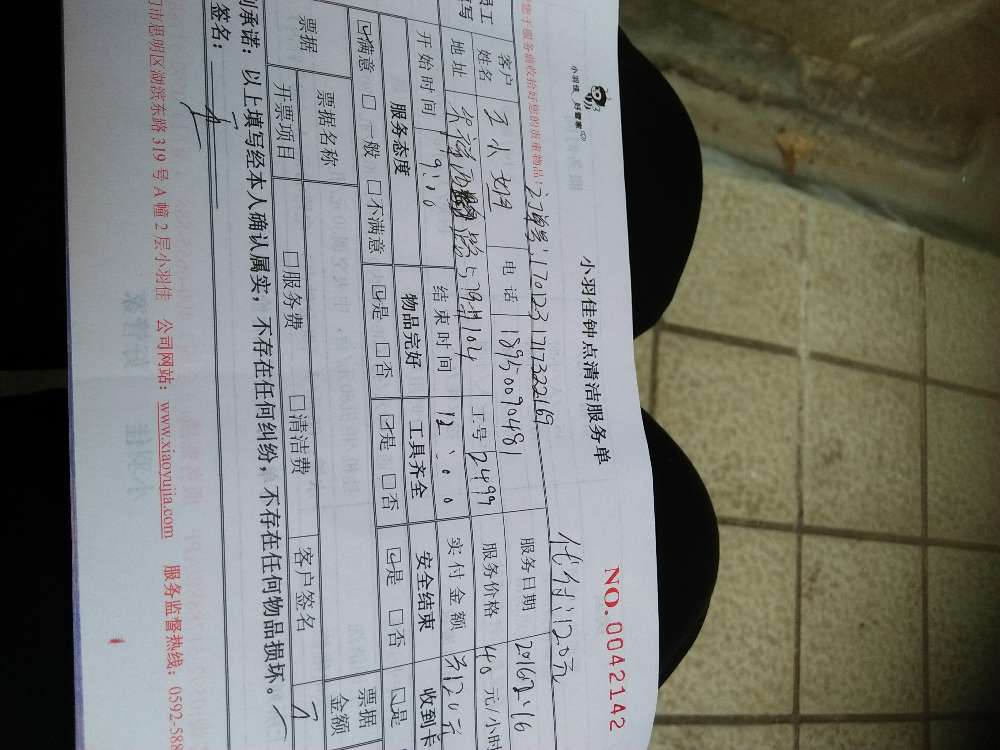 小羽佳 好管家
小羽佳钟点清洁服务单
NO.0042142
订单号:170123171732269
代付:120元
您于服务前收拾好您的贵重物品!
客户
姓名
王小姐
电话
18950090481
服务日期
地址
工号
2499
服务价格
40
元/小时
开始时间
9:00
结束时间
12:00
实付金额
120元
服务态度
物品完好
工具齐全
安全结束
收到卡
☑满意 □一般 □不满意
☑是 □否
☑是 □否
☑是 □否
☑是
票据
票据名称
票据
金额
开票项目
□服务费
□清洁费
客户签名
承诺:以上填写经本人确认属实,不存在任何纠纷,不存在任何物品损坏。
签名:
门市思明区湖滨东路 319 号 A 幢 2 层小羽佳 公司网站:www.xiaoyujia.com 服务监督热线:0592-588